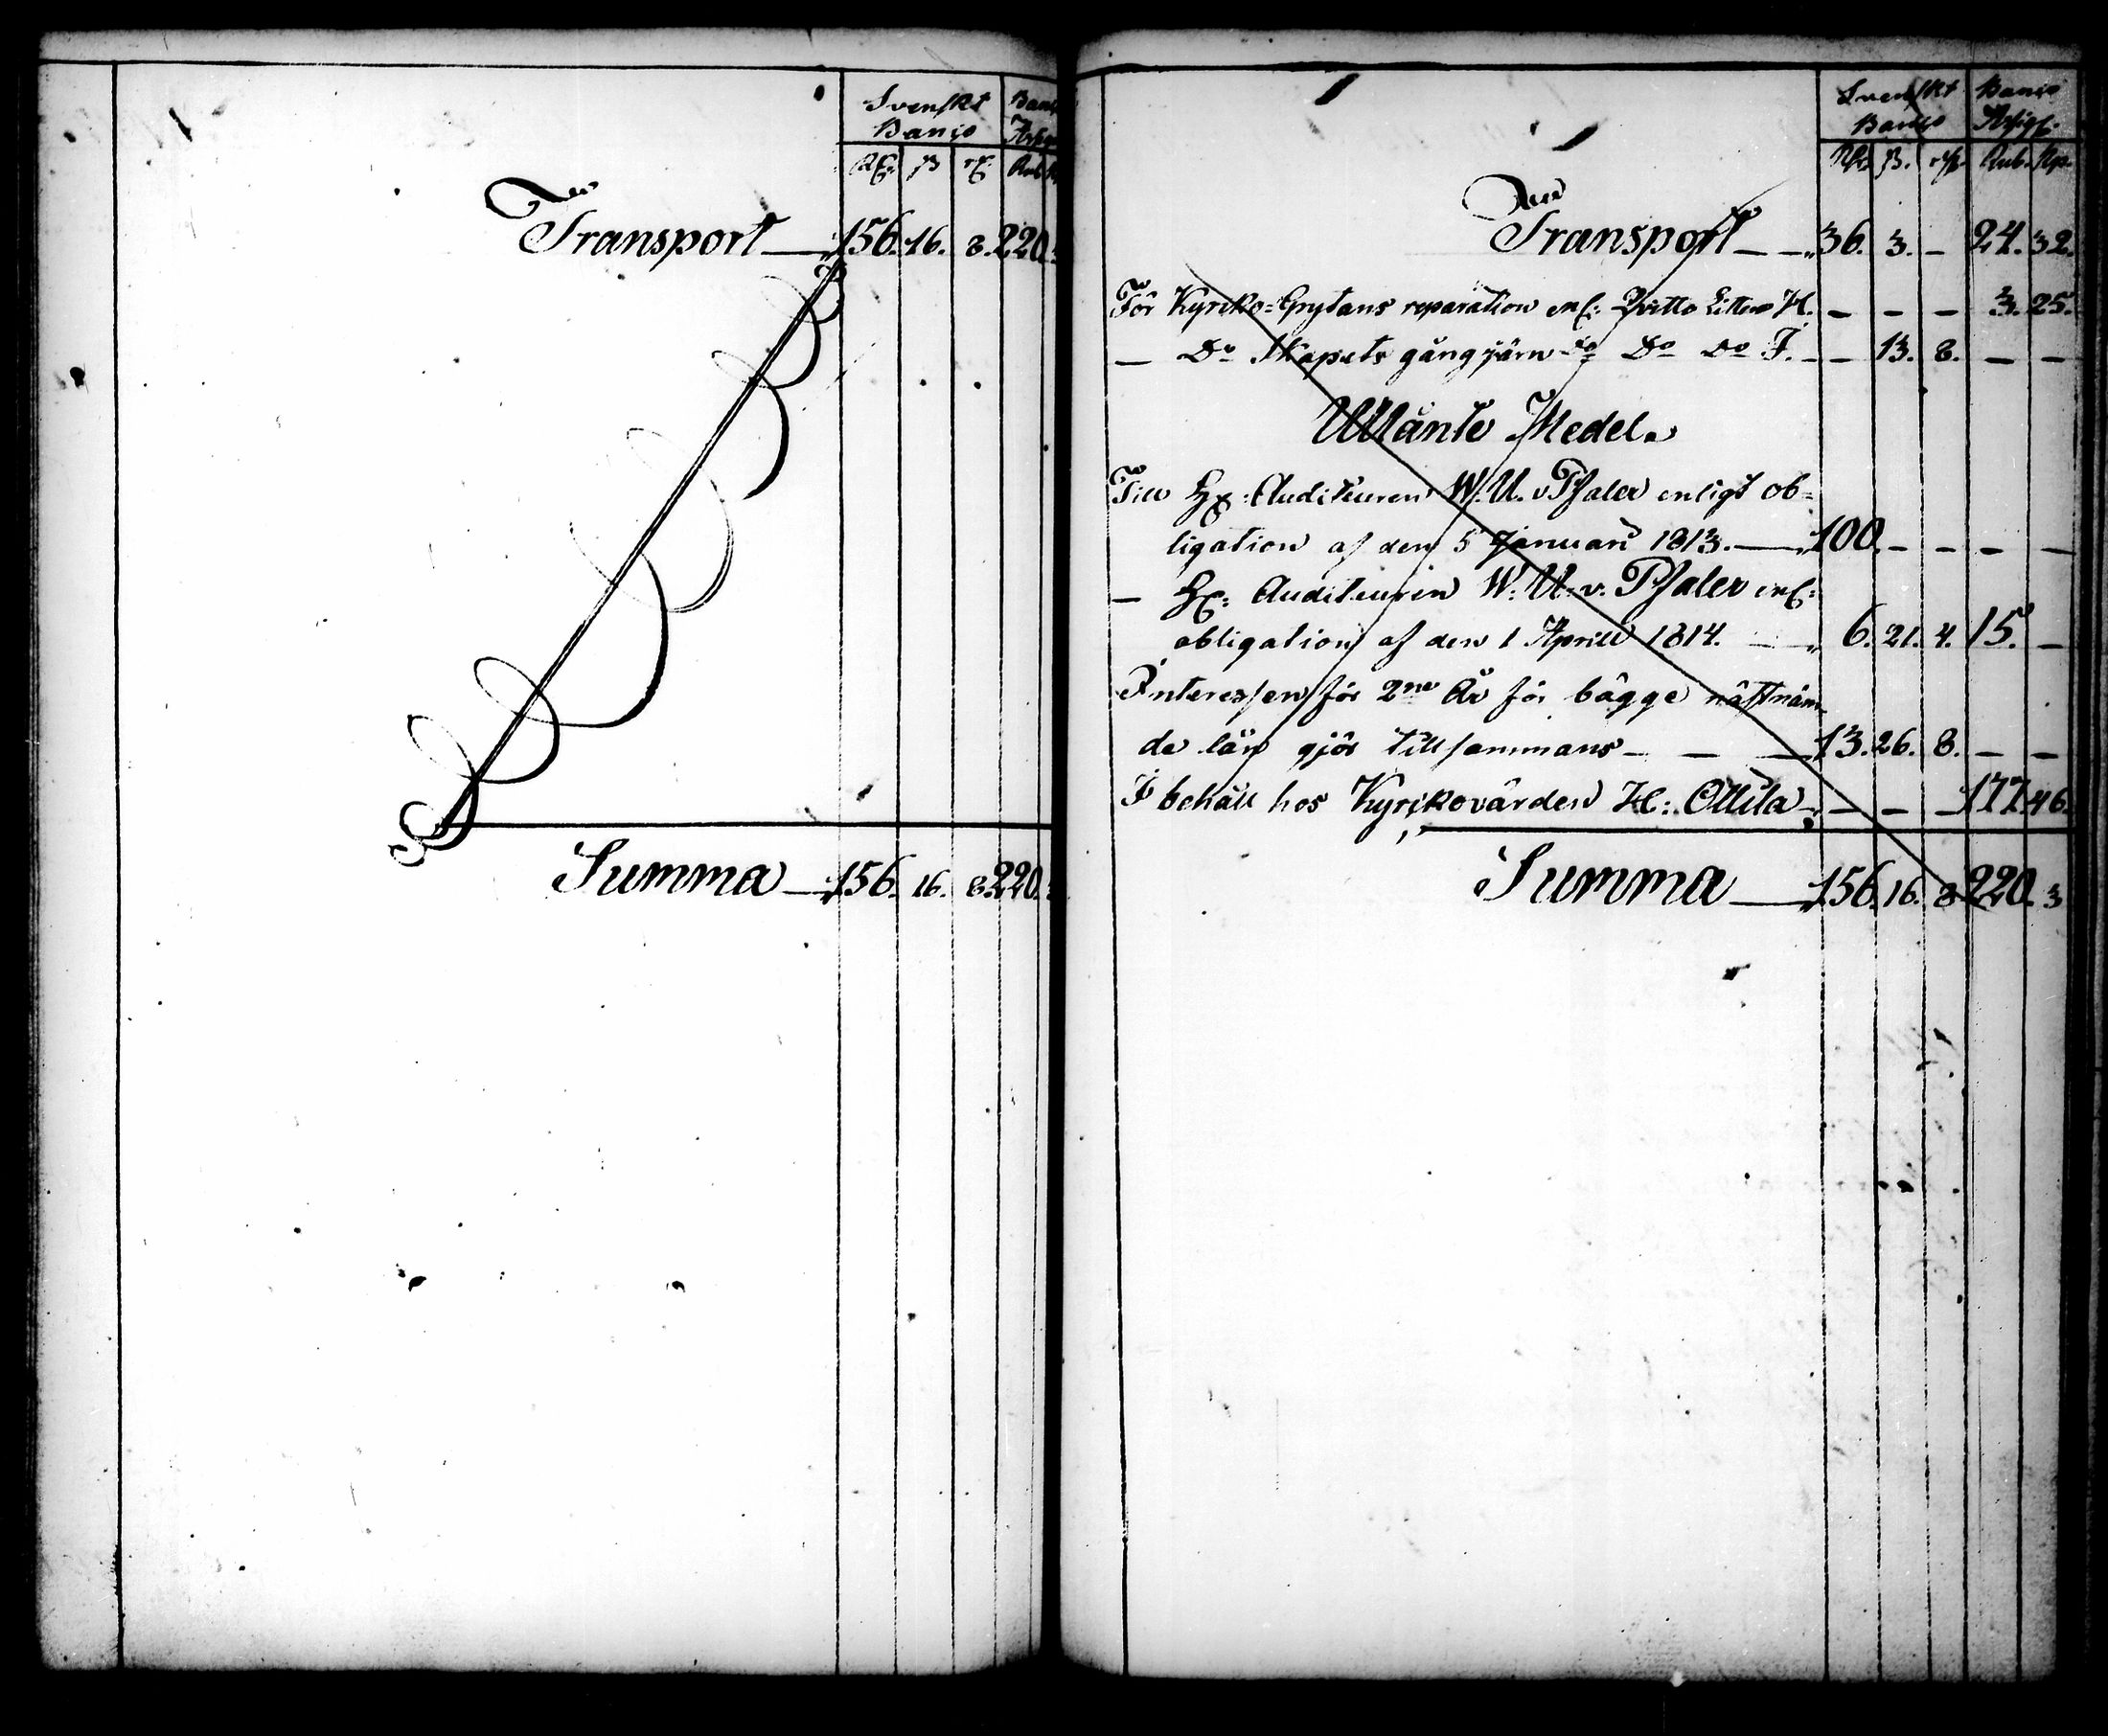 Svenskt Banco
Banco
Transport 156. 16. 8. 220.
Summa 156. 16. 8. 220.
Svenskt Banco
Banco Assign:
Rub. Kop.
Transport 36. 3. — 24. 32.
För Kyrko-Grytans reparation enl: Qvitto Litt H. — — — 3. 25.
— Do Skåpets gångjärn do Do Do I. — 13. 8. — —
Utlånte Medel.
Till Hr: Auditeuren W. U. v Pfaler enligt ob-
ligation af den 5 Januari 1813. 100. — — — —
— Hr: Auditeuren W: U: v. Pfaler enl:
obligation af den 1 Aprill 1814. 6. 21. 4. 15. —
Interessen för 2ne År för bägge nästnäm-
de lån gjör tillsammans 13. 26. 8. — —
I behåll hos Kyrkovärden H: Ollila — — — 177. 46.
Summa 156. 16. 8 220. 3